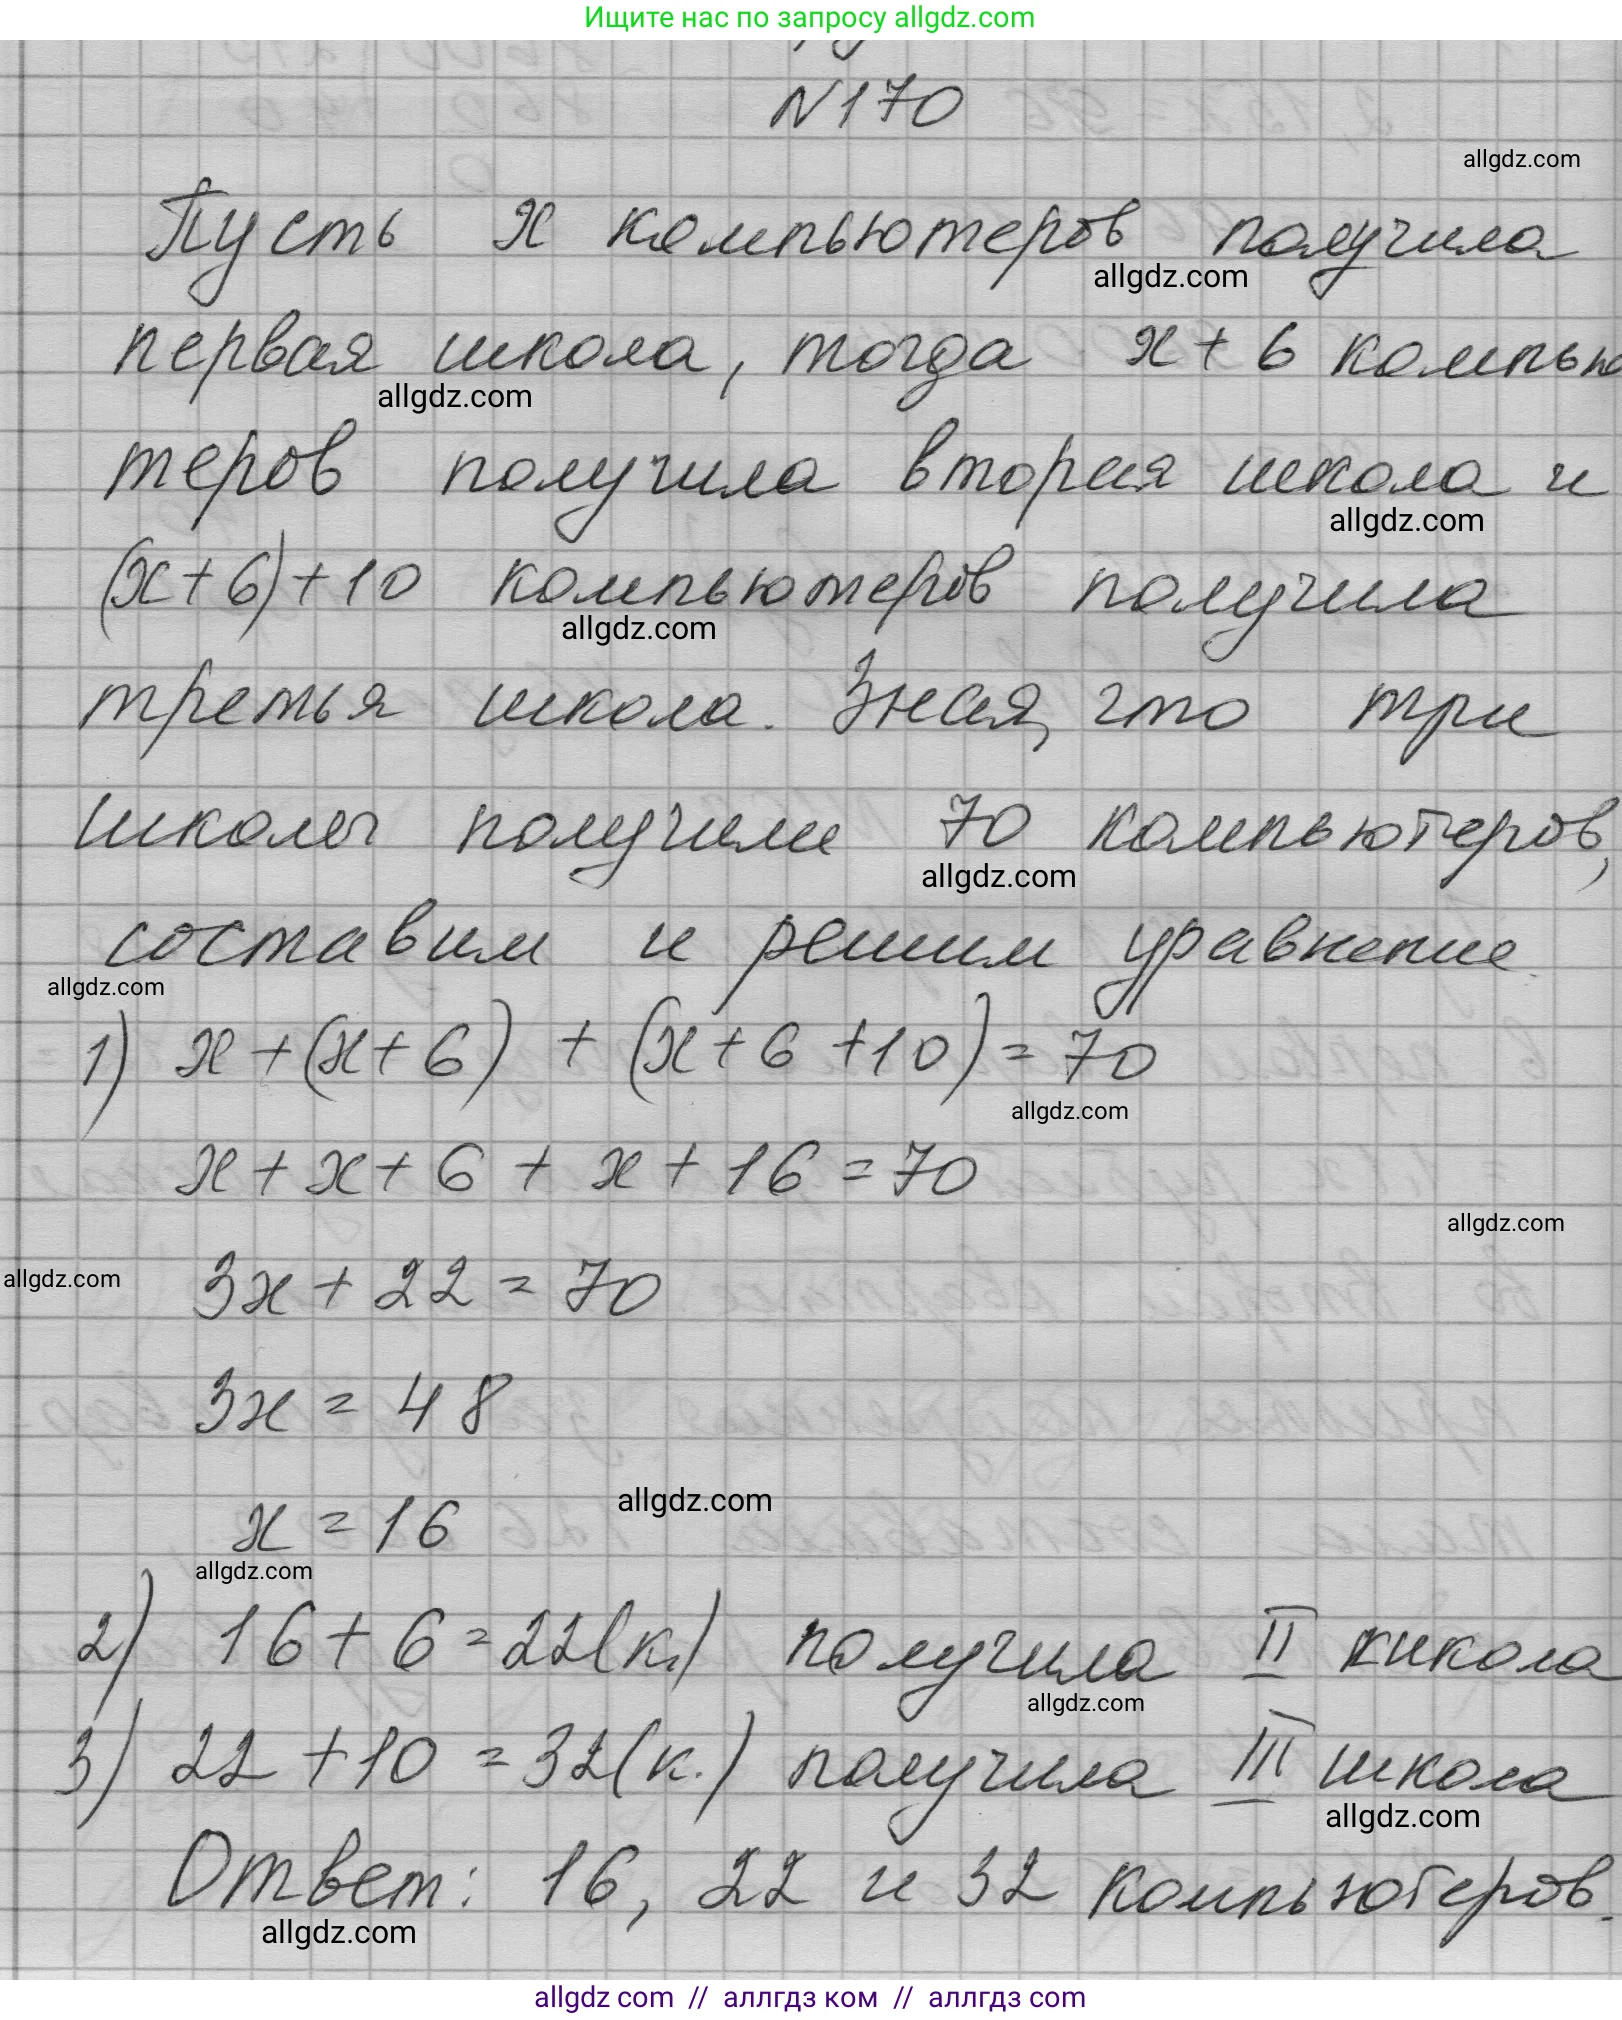 Ищите нас по запросу allgdz.com
N170
allgdz.com
Пусть x компьютеров получила
allgdz.com
первая школа, тогда x + 6 компью
allgdz.com
теров получила вторая школа и
allgdz.com
(x+6)+10 компьютеров получила
allgdz.com
третья школа. Зная, что три
школы получили 70 компьютеров,
allgdz.com
составим и решим уравнение.
allgdz.com
1) x + (x + 6) + (x + 6 + 10) = 70
allgdz.com
x + x + 6 + x + 16 = 70
allgdz.com
3x + 22 = 70
allgdz.com
3x = 48
allgdz.com
x = 16
allgdz.com
2) 16 + 6 = 22 (к.) получила II школа
allgdz.com
3) 22 + 10 = 32 (к.) получила III школа
allgdz.com
Ответ: 16, 22 и 32 компьютеров.
allgdz.com
allgdz com // аллгдз ком // аллгдз com